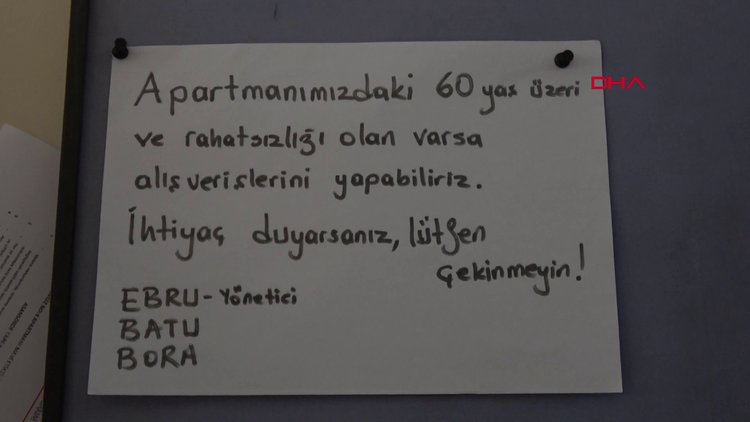 Apartmanımızdaki 60 yaş üzeri
DHA
ve rahatsızlığı olan varsa
alışverişlerini yapabiliriz.
İhtiyaç duyarsanız, lütfen
çekinmeyin!
EBRU - Yönetici
BATU
BORA